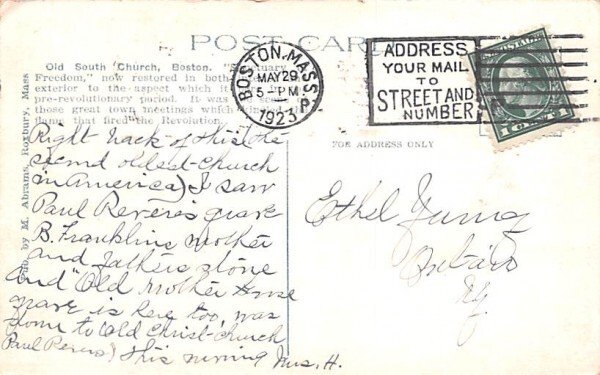 POST CARD
Old South Church, Boston.
Freedom," now restored in both
exterior to the aspect which it
pre-revolutionary period. It was
those great town meetings which
flame that fired the Revolution.
Pub. by M. Abrams, Roxbury, Mass
BOSTON, MASS. P
MAY 29
5-PM
1923
ADDRESS
YOUR MAIL
TO
STREET AND
NUMBER
U.S. POSTAGE
1 CENT 1
FOR ADDRESS ONLY
Right back of this (the
second oldest church
in America) I saw
Paul Revere's grave
B. Franklins mother
and fathers stone
and "Old Mother Goose
grave is here too, was
down to Old Christ church
Paul Reveres) this morning Mrs. H.
Ethel
Ky